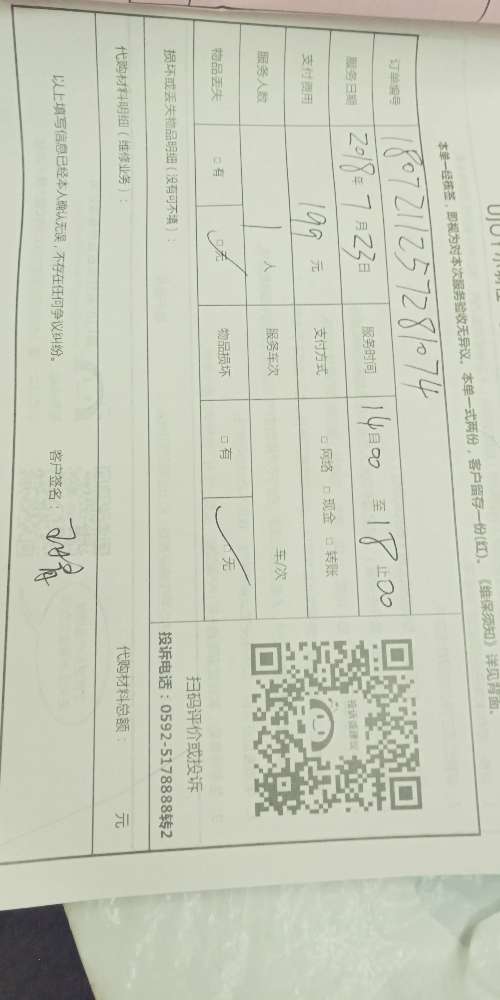 本单一经核签,即视为对本次服务验收无异议。本单一式两份,客户留存一份(红)。《维保须知》详见背面。
订单编号 1807211257281074
服务日期 2018年7月23日 服务时间 14时00 至 18止00
支付费用 199元 支付方式 □网络 □现金 □转账
服务人数 1人 服务车次 车/次
物品丢失 □有 □无 物品损坏 □有 □无
损坏或丢失物品明细(没有可不填):
投诉建议
扫码评价或投诉
投诉电话:0592-5178888转2
代购材料明细(维修业务): 代购材料总额: 元
以上填写信息已经本人确认无误,不存在任何争议纠纷。 客户签名: